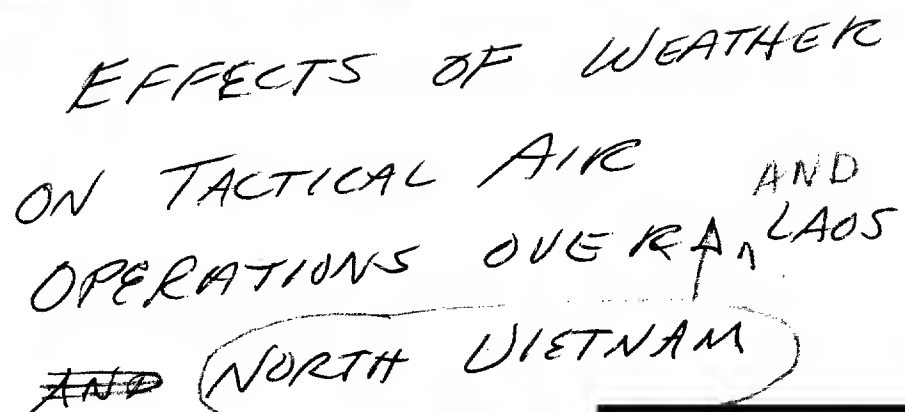 EFFECTS OF WEATHER
ON TACTICAL AIR
OPERATIONS OVER ^ AND LAOS
AND NORTH VIETNAM